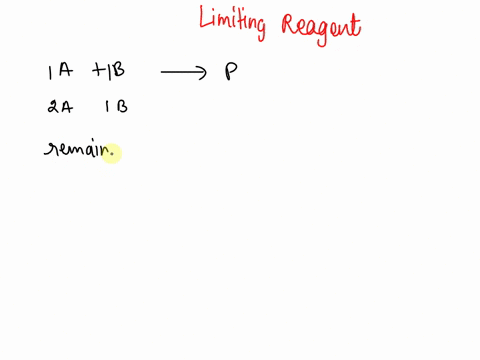 Limiting Reagent
1A +1B → P
2A 1B
remain.